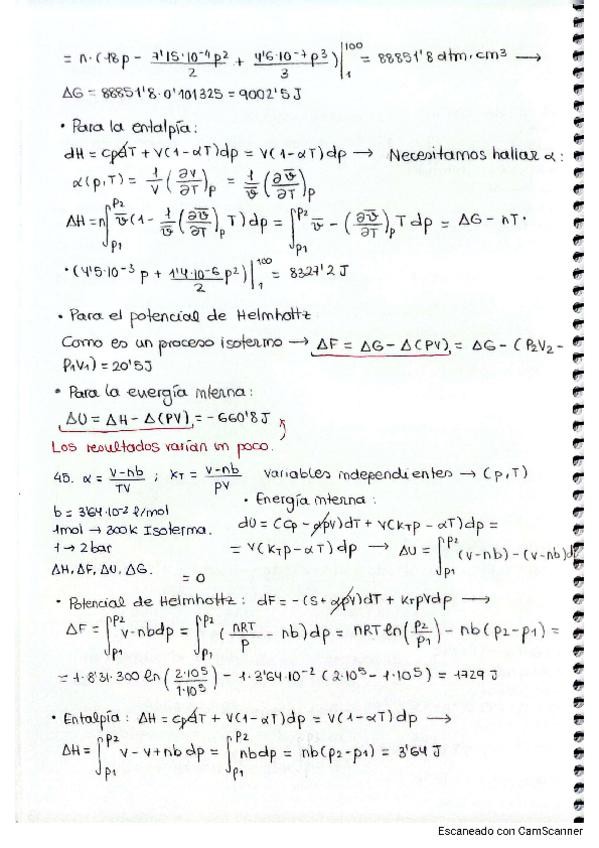 = n·(18p - 7'15·10⁻⁴p²/2 + 4'6·10⁻⁷p³/3)|₁¹⁰⁰ = 88851'8 atm·cm³ →
ΔG = 88851'8·0'101325 = 9002'5 J
• Para la entalpía:
dH = cpdT + V(1-αT)dp = V(1-αT)dp → Necesitamos hallar α:
α(p,T) = 1/V (∂V/∂T)p = 1/v̄ (∂v̄/∂T)p
ΔH = n∫p1^p2 v̄(1 - 1/v̄ (∂v̄/∂T)p T)dp = ∫p1^p2 v̄ - (∂v̄/∂T)p T dp = ΔG - nT·
·(4'5·10⁻³p + 1'4·10⁻⁶p²/2)|₁¹⁰⁰ = 8327'2 J
• Para el potencial de Helmholtz
Como es un proceso isotermo → ΔF = ΔG - Δ(PV) = ΔG - (P₂V₂ -
P₁V₁) = 20'5J
• Para la energía interna:
ΔU = ΔH - Δ(PV) = -660'8 J
Los resultados varían un poco.
45. α = V-nb/TV ; KT = V-nb/PV variables independientes → (p,T)
b = 3'64·10⁻² l/mol
1mol → 300k Isoterma.
1 → 2 bar
ΔH, ΔF, ΔU, ΔG.
• Energía interna:
dU = (Cp - αpV)dT + V(KTp - αT)dp =
= V(KTp - αT)dp → ΔU = ∫p1^p2 (v-nb) - (v-nb)d
= 0
• Potencial de Helmholtz: dF = -(S + αpV)dT + KTpVdp →
ΔF = ∫p1^p2 v-nbdp = ∫p1^p2 (nRT/p - nb)dp = nRT ln(p₂/p₁) - nb(p₂-p₁) =
= 1·8'31·300 ln(2·10⁵/1·10⁵) - 1·3'64·10⁻² (2·10⁵ - 1·10⁵) = 1729 J
• Entalpía: ΔH = cpdT + V(1-αT)dp = V(1-αT)dp →
ΔH = ∫p1^p2 v-v+nbdp = ∫p1^p2 nbdp = nb(p₂-p₁) = 3'64 J
Escaneado con CamScanner